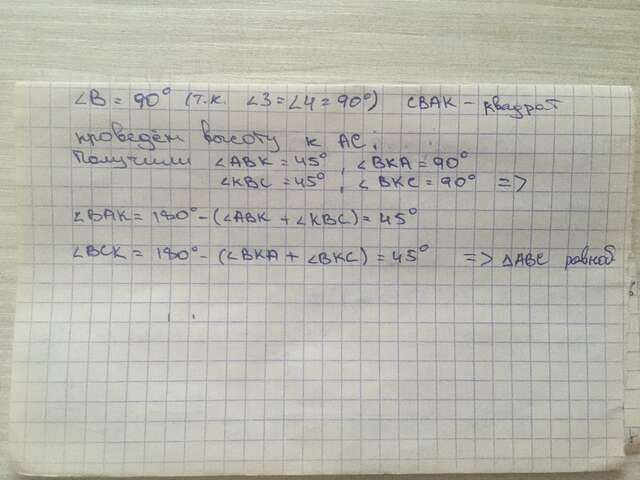 ∠B = 90° (т.к. ∠3 = ∠4 = 90°) СВАК - квадрат
проведём высоту к АС;
Получили ∠ABK = 45°, ∠BKA = 90°
∠KBC = 45°, ∠BKC = 90° =>
∠BAK = 180° - (∠ABK + ∠KBC) = 45°
∠BCK = 180° - (∠BKA + ∠BKC) = 45° => △ABC равноб